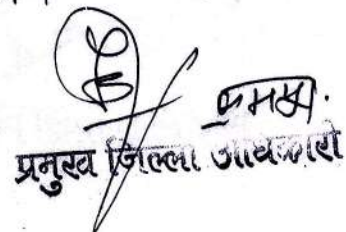 क्रमशः.
प्रमुख जिल्ला अधिकारी